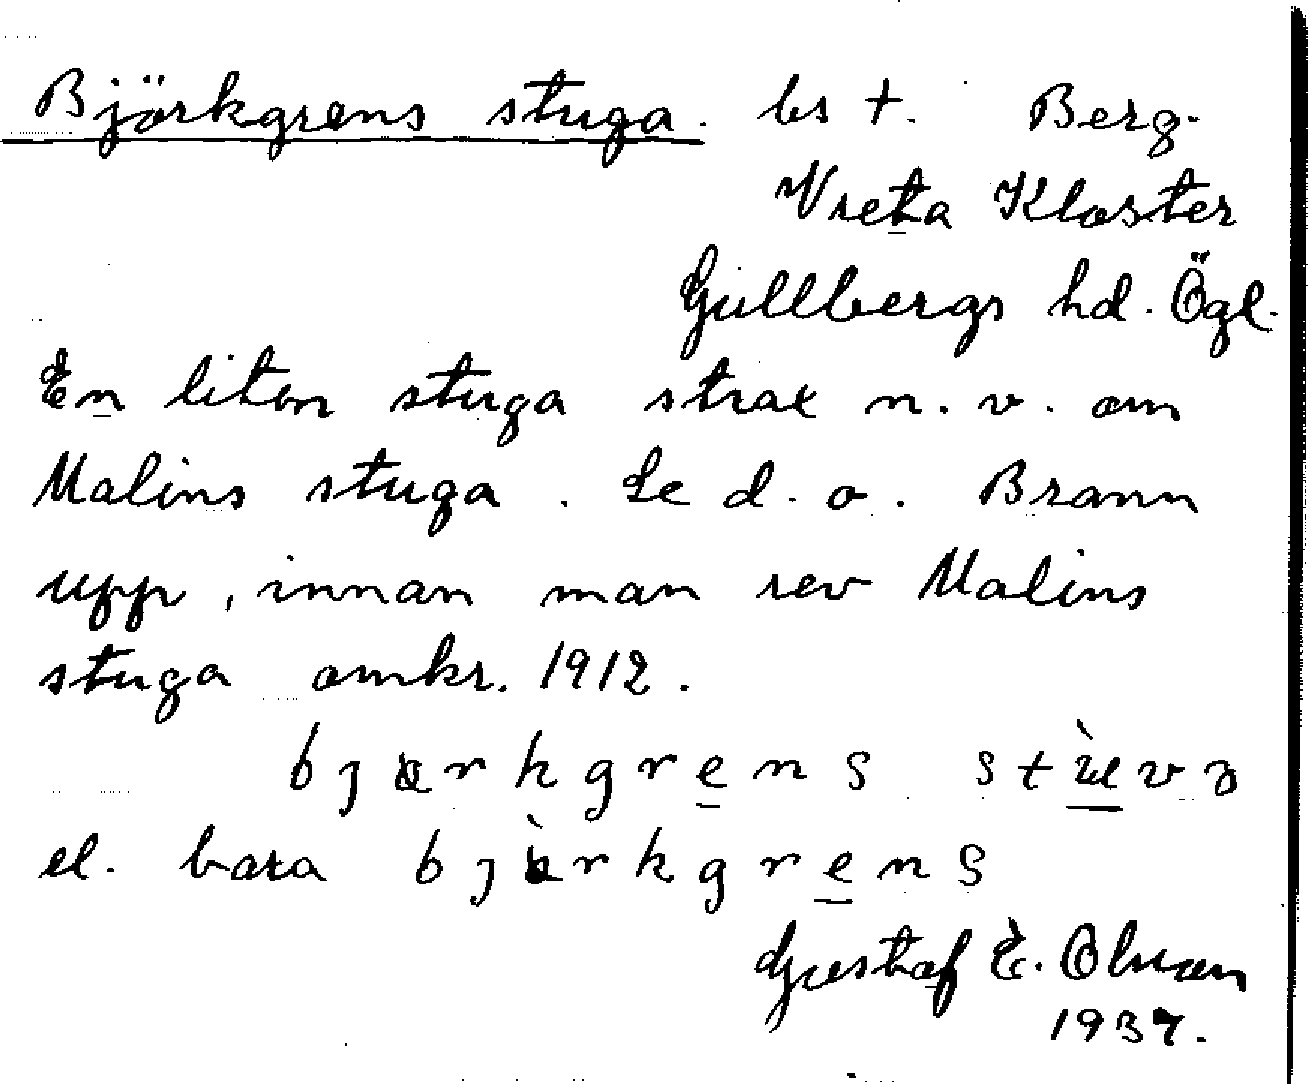 Björkgrens stuga. bs †. Berg.
Vreta Kloster
Gullbergs hd. Ögl.
En liten stuga strax n. v. om
Malins stuga. Se d. o. Brann
upp, innan man rev Malins
stuga omkr. 1912.
el. bara
Gustaf E. Olman
1937.